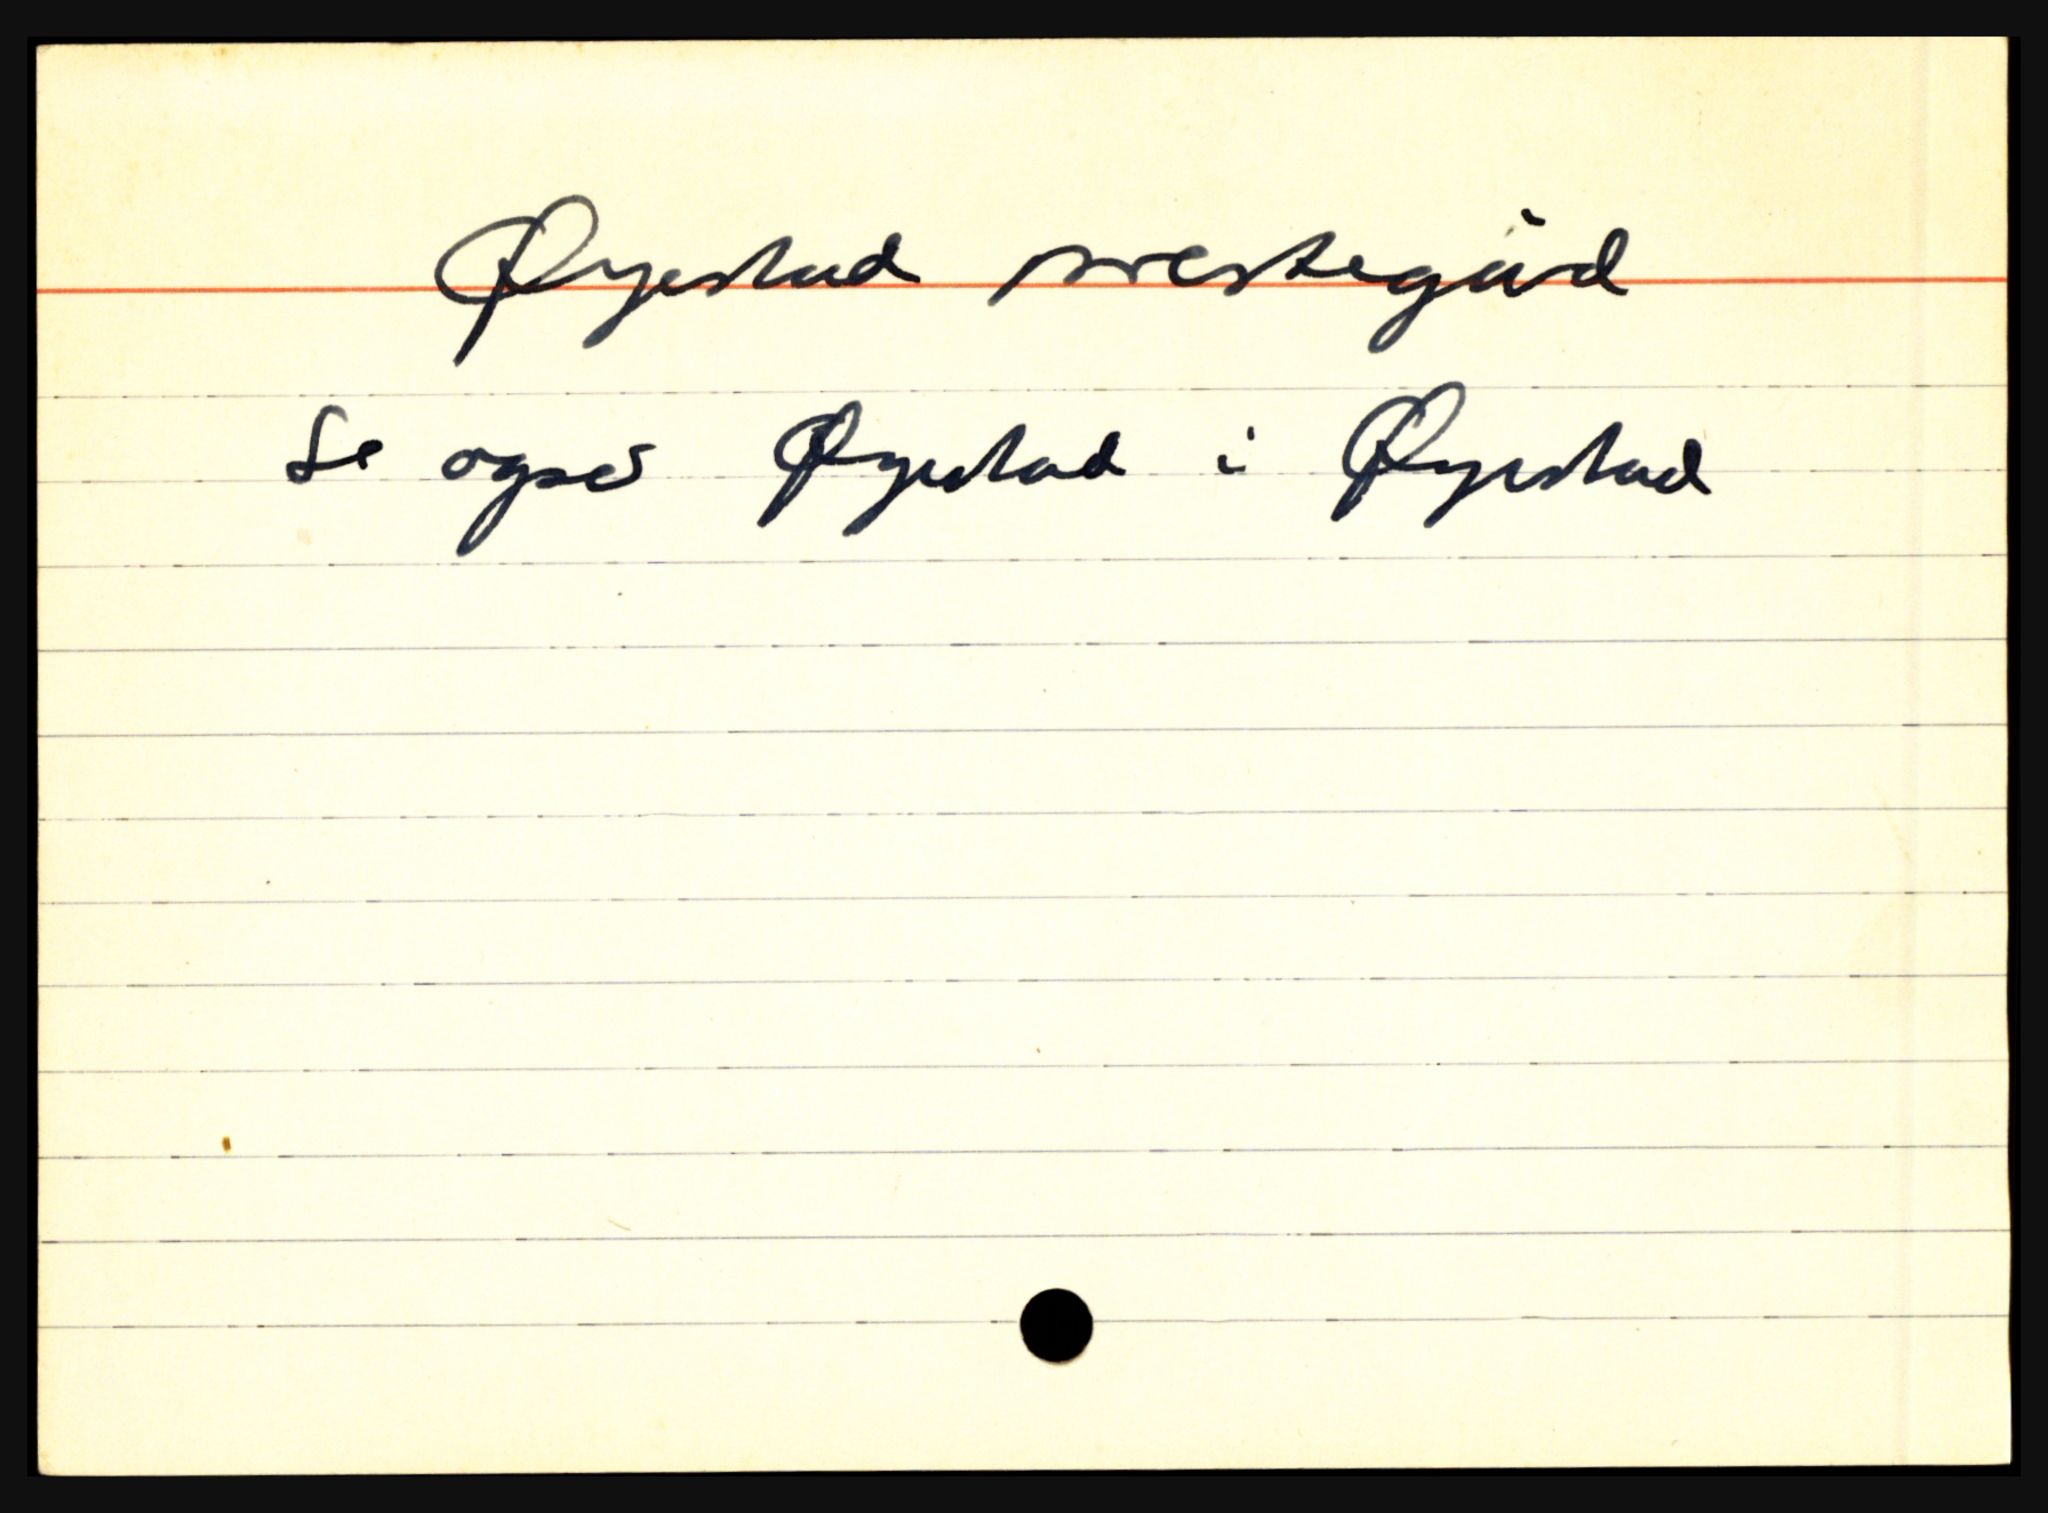 Øyestad prestegård
Se også Øyestad i Øyestad